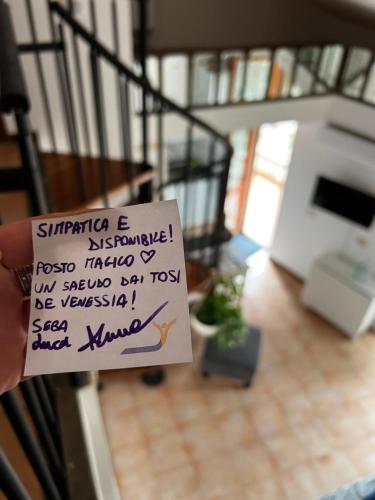 SIMPATICA E
DISPONIBILE!
POSTO MAGICO ♡
UN SALUDO DAI TOSI
DE VENESSIA!
SEBA